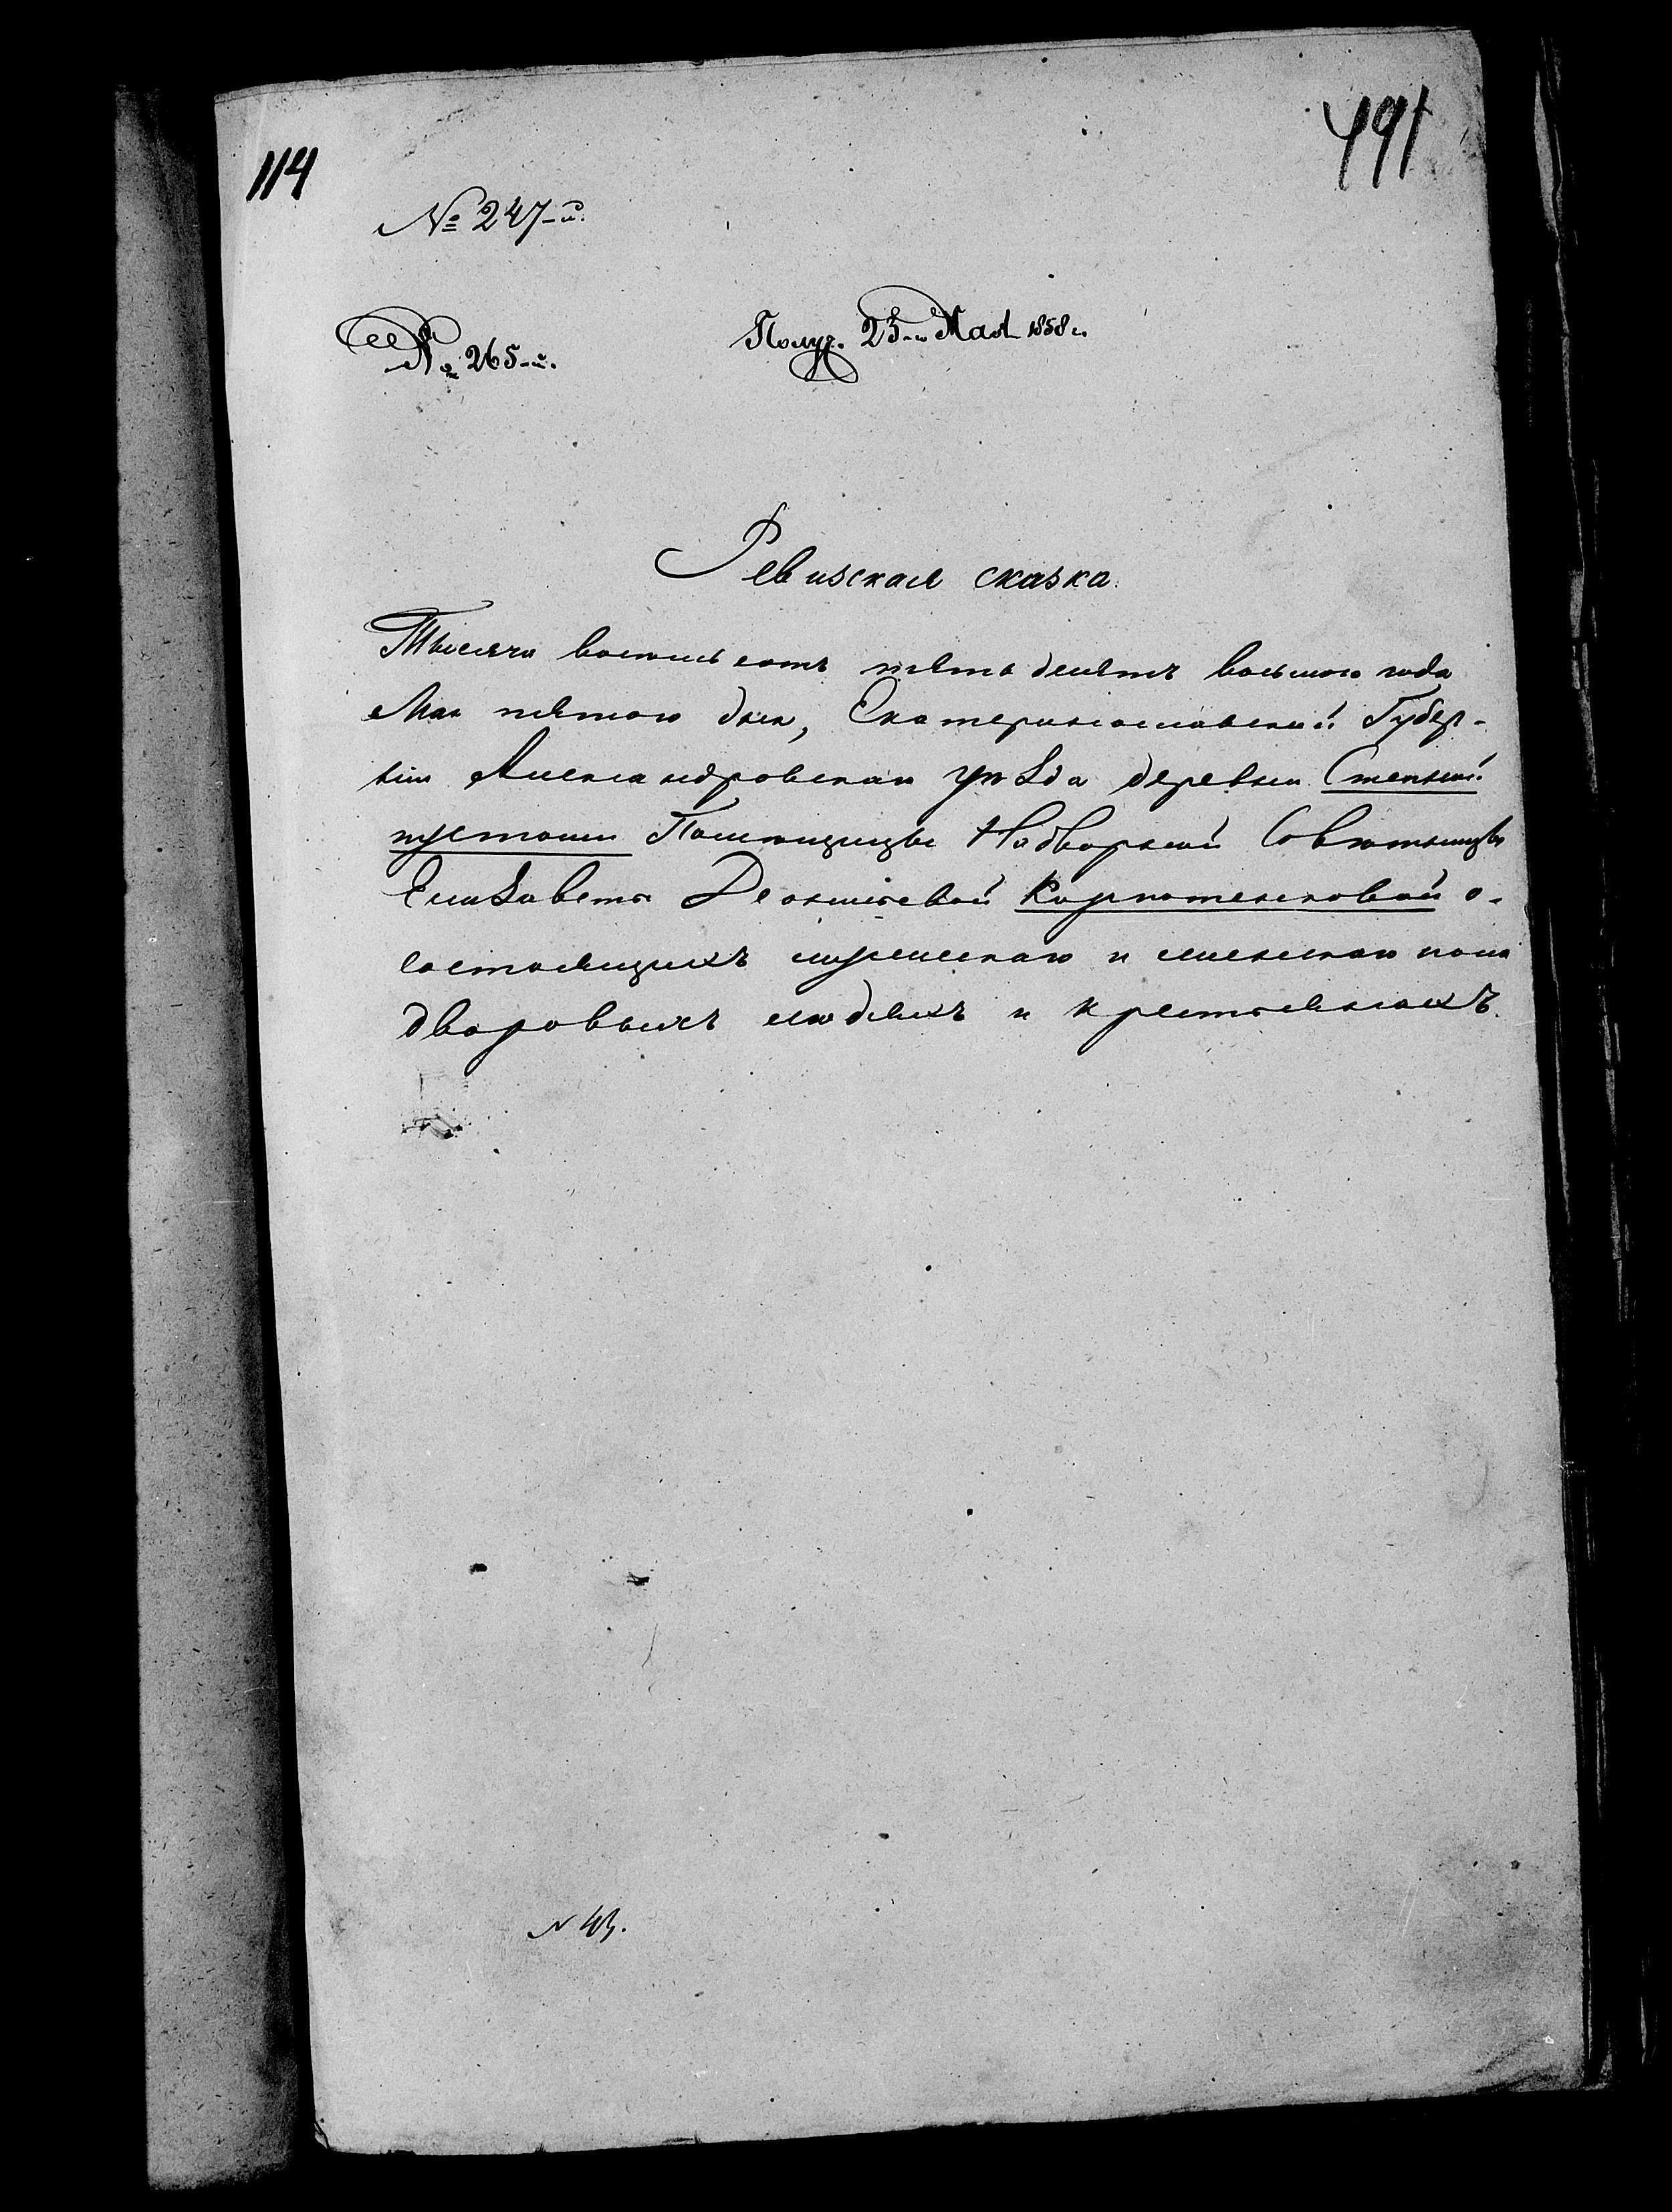 114
491
№ 247-й.
№ 265-й.
Получ. 23-го Мая 1858 г.
Ревизская сказка.
Тысяча восемь сотъ пять десятъ восьмого года
Мая пятого дня, Екатеринославской Губер-
ніи Александровскаго уѣзда деревни Степной
пустоши Помѣщицы Надворной Совѣтницы
Елизаветы Деонисіевой Карпотенковой о
состоящихъ мужескаго и женскаго пола
дворовыхъ людяхъ и крестьянахъ.